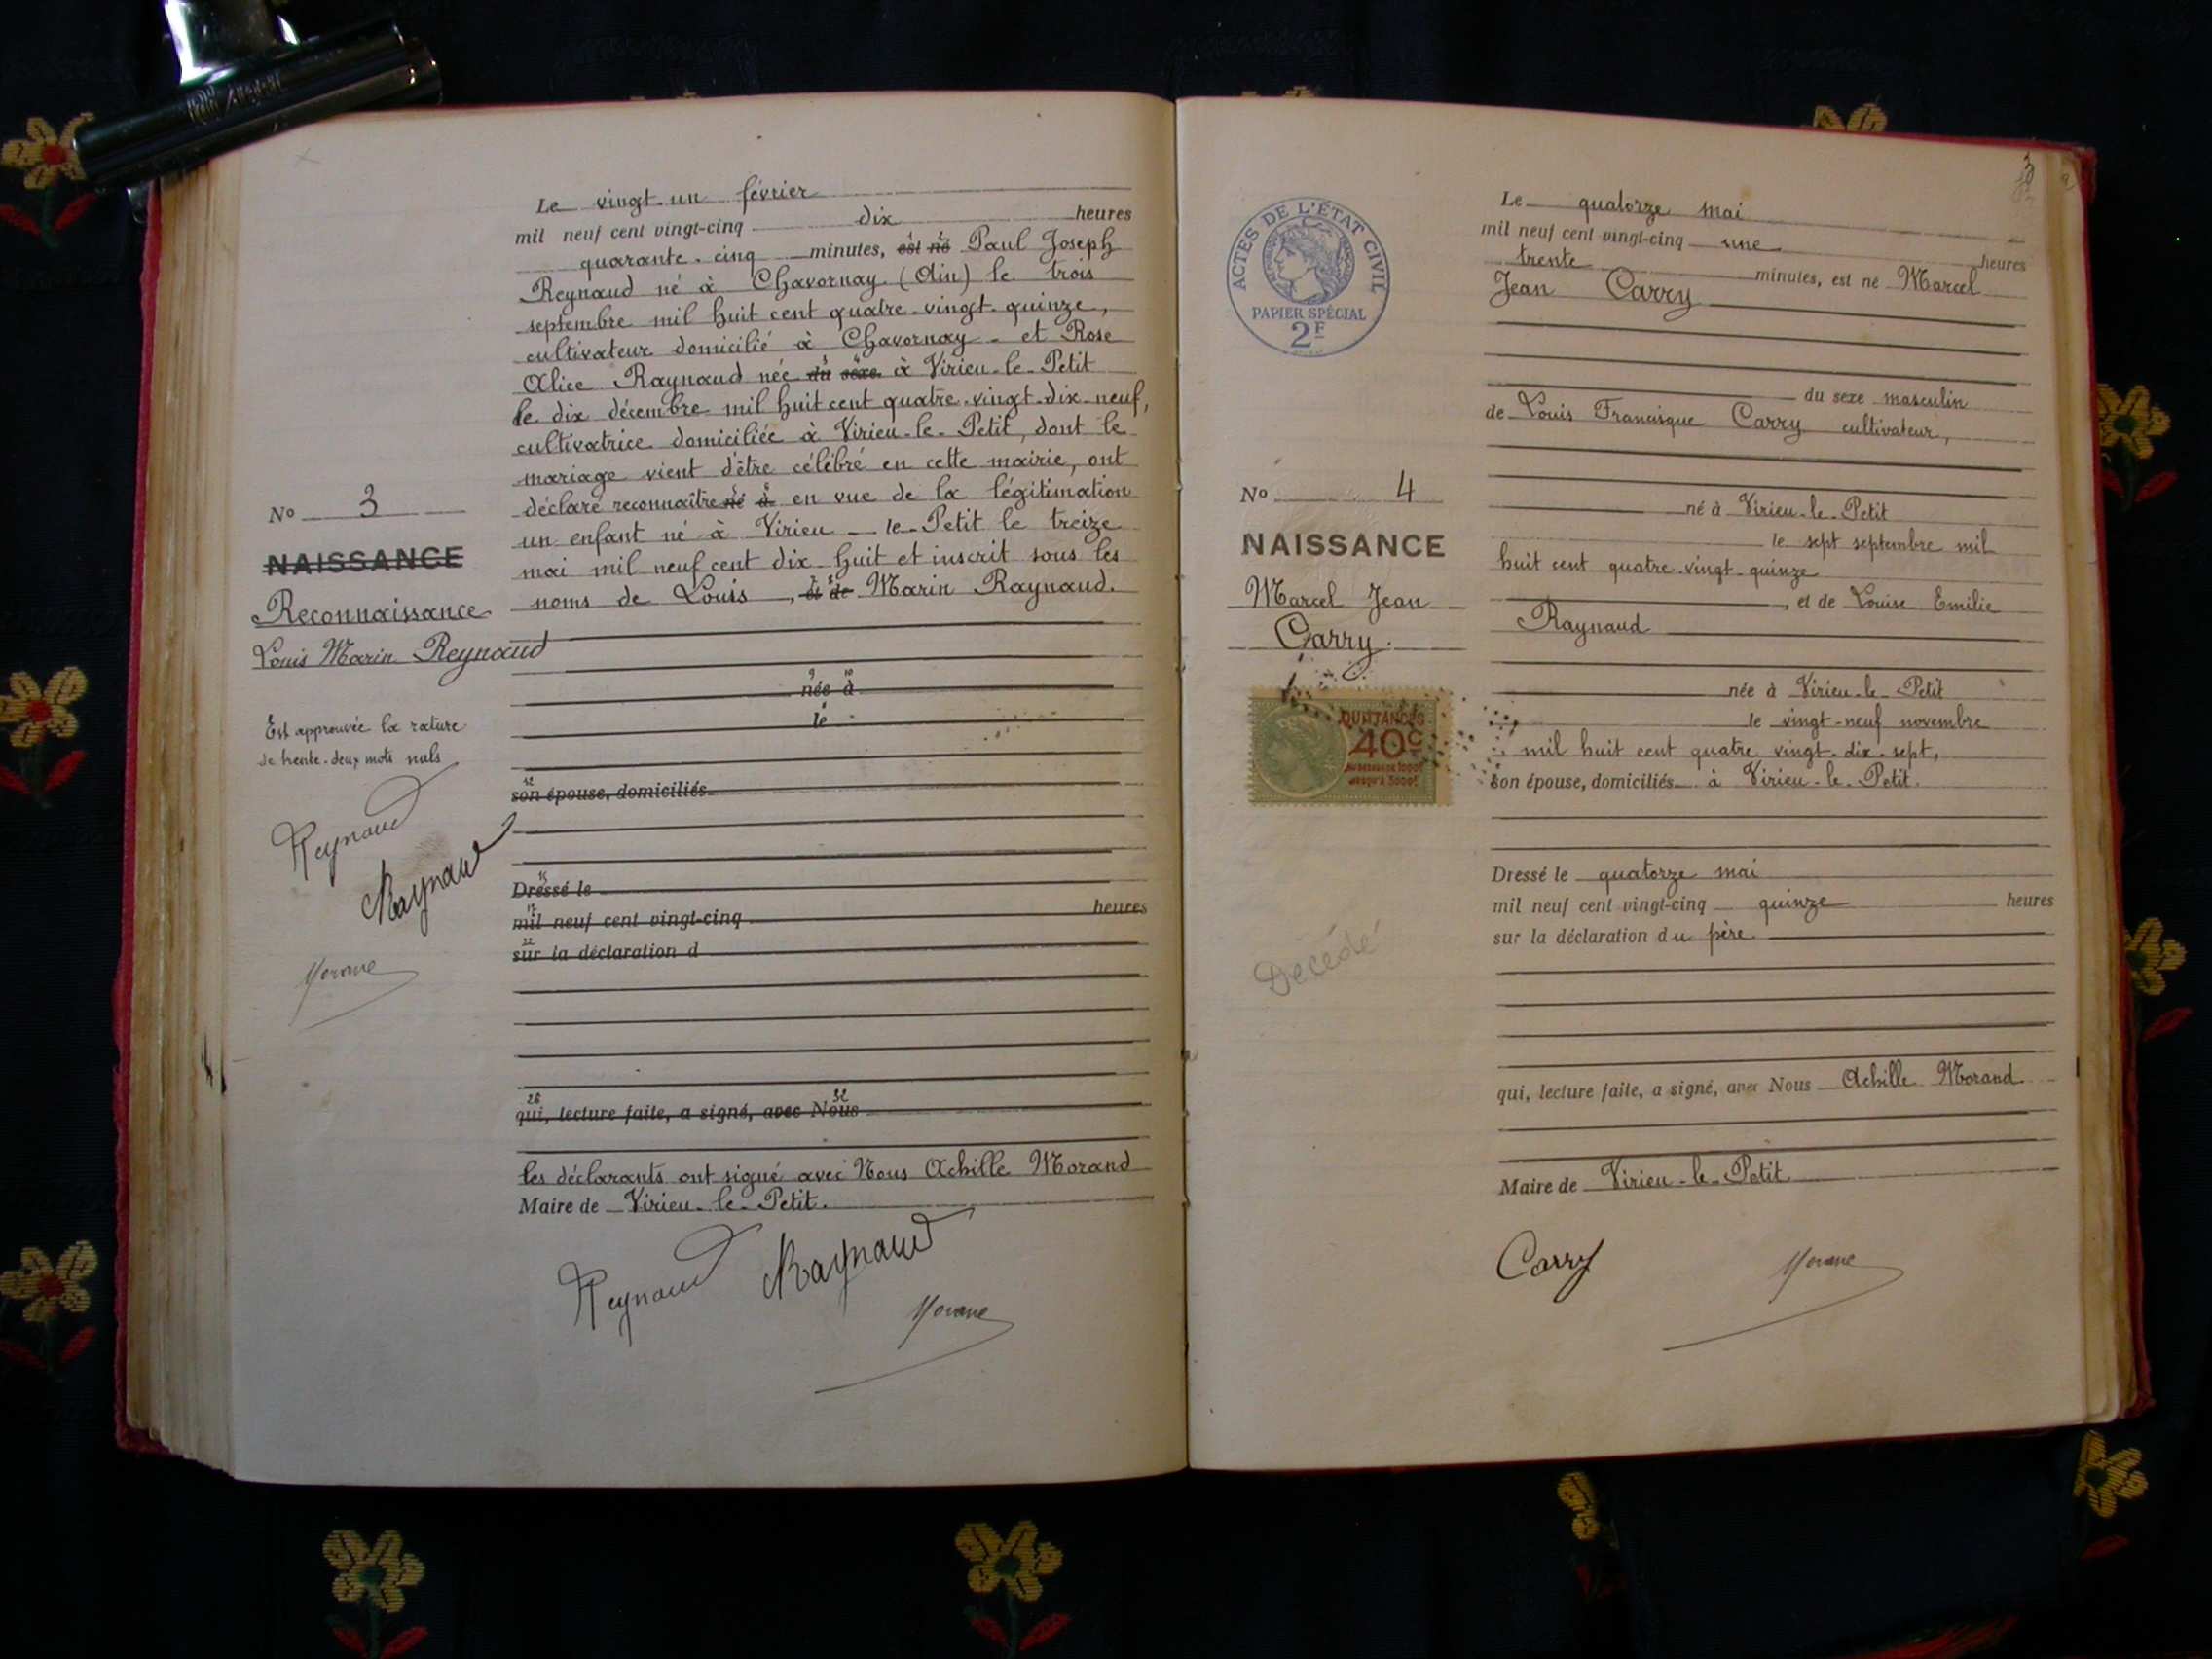 Le vingt-un février
mil neuf cent vingt-cinq dix heures
quarante-cinq minutes, est né Paul Joseph
Reynaud né à Chavornay (Ain) le trois
septembre mil huit cent quatre-vingt-quinze,
cultivateur domicilié à Chavornay - et Rose
Alice Raynaud née du sexe à Virieu-le-Petit
le dix décembre mil huit cent quatre-vingt-dix-neuf,
cultivatrice domiciliée à Virieu-le-Petit, dont le
mariage vient d'être célébré en cette mairie, ont
déclaré reconnaître né à en vue de la légitimation
un enfant né à Virieu-le-Petit le treize
mai mil neuf cent dix-huit et inscrit sous les
noms de Louis, et de Marin Raynaud.
née à
le
son épouse, domiciliés
Dressé le
mil neuf cent vingt-cinq heures
sur la déclaration d
qui, lecture faite, a signé, avec Nous
les déclarants ont signé avec Nous Achille Morand
Maire de Virieu-le-Petit.
Reynaud Raynaud
Morand
No 3
NAISSANCE
Reconnaissance
Louis Marin Reynaud
Est approuvée la rature
de trente-deux mots nuls
Reynaud
Raynaud
Morand
ACTES DE L'ÉTAT CIVIL
PAPIER SPÉCIAL
2F
No 4
NAISSANCE
Marcel Jean
Carry.
QUITTANCES
40c
Décédé
Le quatorze mai
mil neuf cent vingt-cinq une heures
trente minutes, est né Marcel
Jean Carry
du sexe masculin
de Louis Francisque Carry cultivateur,
né à Virieu-le-Petit
le sept septembre mil
huit cent quatre-vingt-quinze
, et de Louise Emilie
Raynaud
née à Virieu-le-Petit
le vingt-neuf novembre
mil huit cent quatre vingt-dix-sept,
son épouse, domiciliés à Virieu-le-Petit.
Dressé le quatorze mai
mil neuf cent vingt-cinq quinze heures
sur la déclaration du père
qui, lecture faite, a signé, avec Nous Achille Morand.
Maire de Virieu-le-Petit.
Carry Morand